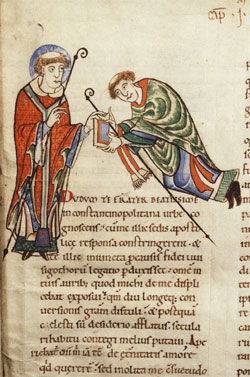 Cap. I.
Dudum te frater beatissime
in constantinopolitana urbe co
gnoscens; cum me illic sedis aposto
licę responsa constringerent. &
te illuc iniuncta pro causis fidei uui
sigothorũ legatio pduxiss&. ome in
tuis aurib; quod mihi de me displi
cebat exposui; qm̃ diu longeq; con
uersionis grã distuli. & postquã
celesti sũ desiderio afflatus. seculari
habitu contegi melius putaui. Ape
riebat̃ eni m̃ iã de ęternitatis amore
qd quererẽ. sed inolita me c̃suetudo